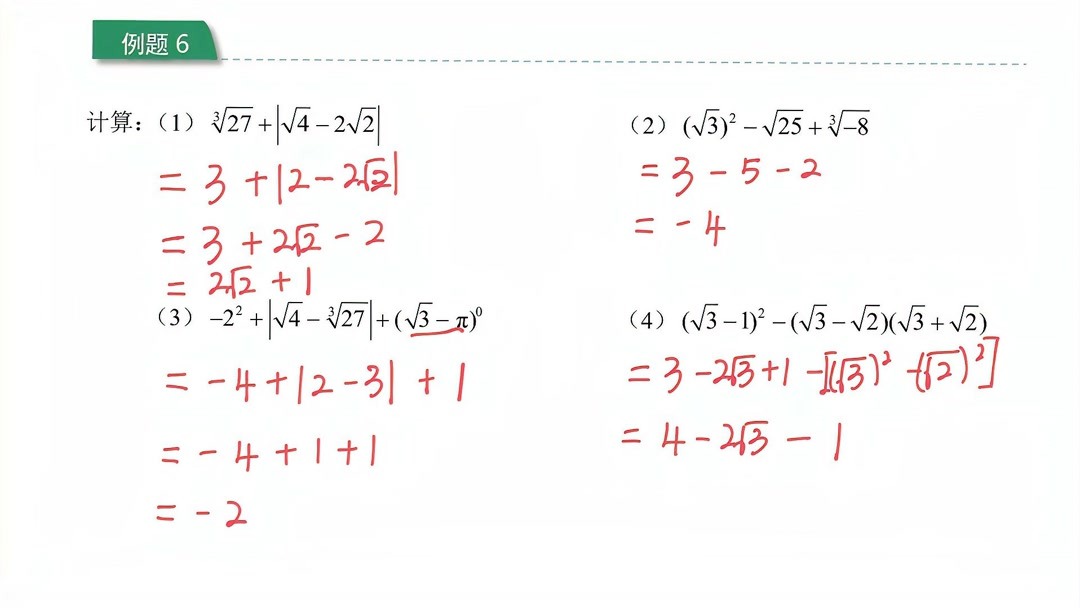 例题 6
计算：（1） ∛27 + |√4 − 2√2|
= 3 + |2 − 2√2|
= 3 + 2√2 − 2
= 2√2 + 1
（2） (√3)² − √25 + ∛−8
= 3 − 5 − 2
= − 4
（3） −2² + |√4 − ∛27| + (√3 − π)⁰
= − 4 + |2 − 3| + 1
= − 4 + 1 + 1
= − 2
（4） (√3 − 1)² − (√3 − √2)(√3 + √2)
= 3 − 2√3 + 1 − [(√3)² − (√2)²]
= 4 − 2√3 − 1